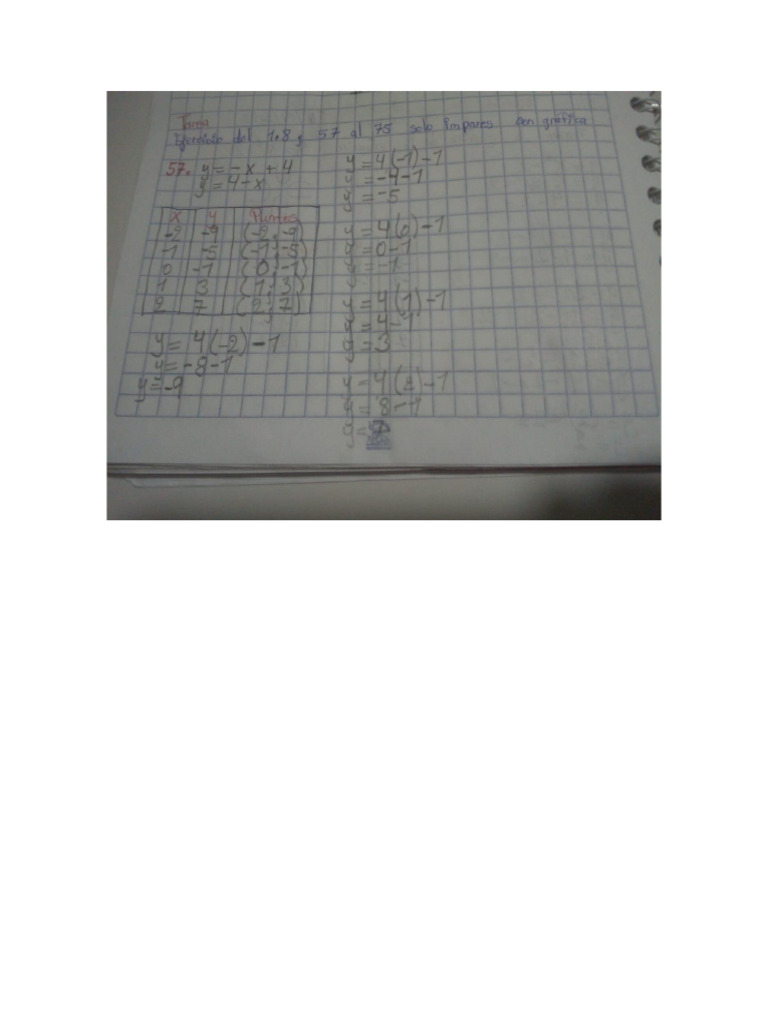 Tarea
Ejercicio del 1.8, 57 al 75 solo impares con gráfica
57. y = -x + 4
y = 4-x
x y Puntos
-2 -9 (-2,-9)
-1 -5 (-1,-5)
0 -1 (0,-1)
1 3 (1,3)
2 7 (2,7)
y = 4(-2)-1
y = -8-1
y = -9
y = 4(-1)-1
y = -4-1
y = -5
y = 4(0)-1
y = 0-1
y = -1
y = 4(1)-1
y = 4-1
y = 3
y = 4(2)-1
y = 8-1
y = 7